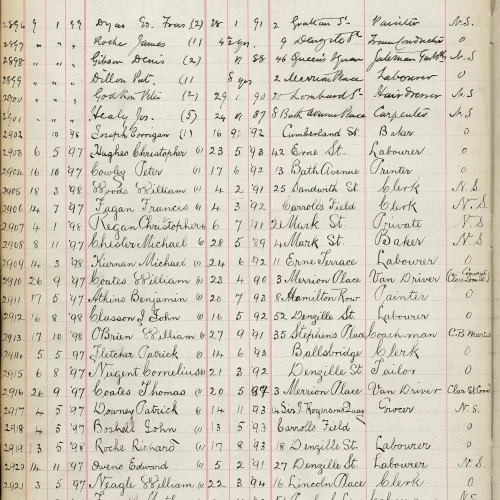 2896 9 1 '99 Dyas Ed. Fras (2) 28 1 91 2 Grattan St. Painter N.S.
2897 " " " Roche James (1) 4 2 yrs. 9 Denzille St. Tram Conductor 0
2898 " " " Gibson Denis (2) " " 88 46 Queen's Square N.S.
2899 " " " Dillon Pat. (1) 8 yrs 2 Merrion Place Labourer 0
2900 " " " Godkin (2) 29 1 90 20 Lombard St. Hair Dresser N.S.
2901 " " " Healy Jas. (5) 24 11 87 8 Bath Avenue Place Carpenter N.S.
2902 10 98 Joseph Corrigan (1) 16 92 Cumberland St. Baker 0
2903 6 5 '97 Hughes Christopher (1) 23 5 '93 42 Erne St. Labourer 0
2904 16 10 '97 Cowley Peter 17 6 '92 13 Bath Avenue Printer 0
2905 18 3 '98 Woods William (1) 4 2 '91 25 Sandwith St. Clerk N.S.
2906 14 7 '97 Fagan Francis (1) 4 3 '92 Carrolls Field Clerk N.S.
2907 4 1 '98 Regan Christopher 6 7 '91 21 Mark St. Private N.S.
2908 8 11 '97 Chester Michael (1) 28 5 '89 4 Mark St. Baker N.S.
2909 14 3 '98 Kiernan Michael (1) 24 6 '92 11 Erne Terrace Labourer 0
2910 26 9 '97 Coates William (1) 23 4 '90 3 Merrion Place Van Driver
2911 17 5 '97 Atkins Benjamin (1) 20 7 '93 8 Hamilton Row Painter 0
2912 16 8 '98 Classon J. John (1) 16 5 '92 52 Denzille St. Labourer 0
2913 17 10 '98 O'Brien William (1) 27 9 '91 35 Stephens Place Coachman C.B.
2914 5 5 '97 Fletcher Patrick (1) 14 6 '93 Ballsbridge Clerk 0
2915 6 8 '97 Nugent Cornelius (1) 21 3 '92 Denzille St. Tailor 0
2916 26 9 '97 Coates Thomas (1) 20 5 '87 3 Merrion Place Van Driver
2917 4 5 '97 Downey Patrick (1) 14 11 '93 14 Sir J Rogersons Quay Grocer N.S.
2918 4 5 '97 Boshell John (1) 13 5 '93 Carrolls Field 0
2919 13 5 '98 Roche Richard (1) 17 8 '93 18 Denzille St. Labourer 0
2920 14 11 '97 Owens Edward (1) 5 2 '91 27 Denzille St. Labourer N.S.
2921 3 5 '97 Neagle William (1) 22 3 '94 16 Lincoln Place Clerk 0